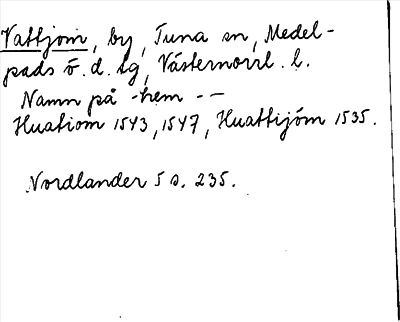 Vattjom, by, Tuna sn, Medel-
pads ö. d. lg, Västernorrl. l.
Namn på -hem --
Huatiom 1543, 1547, Huattijóm 1535.
Nordlander 5 s. 235.